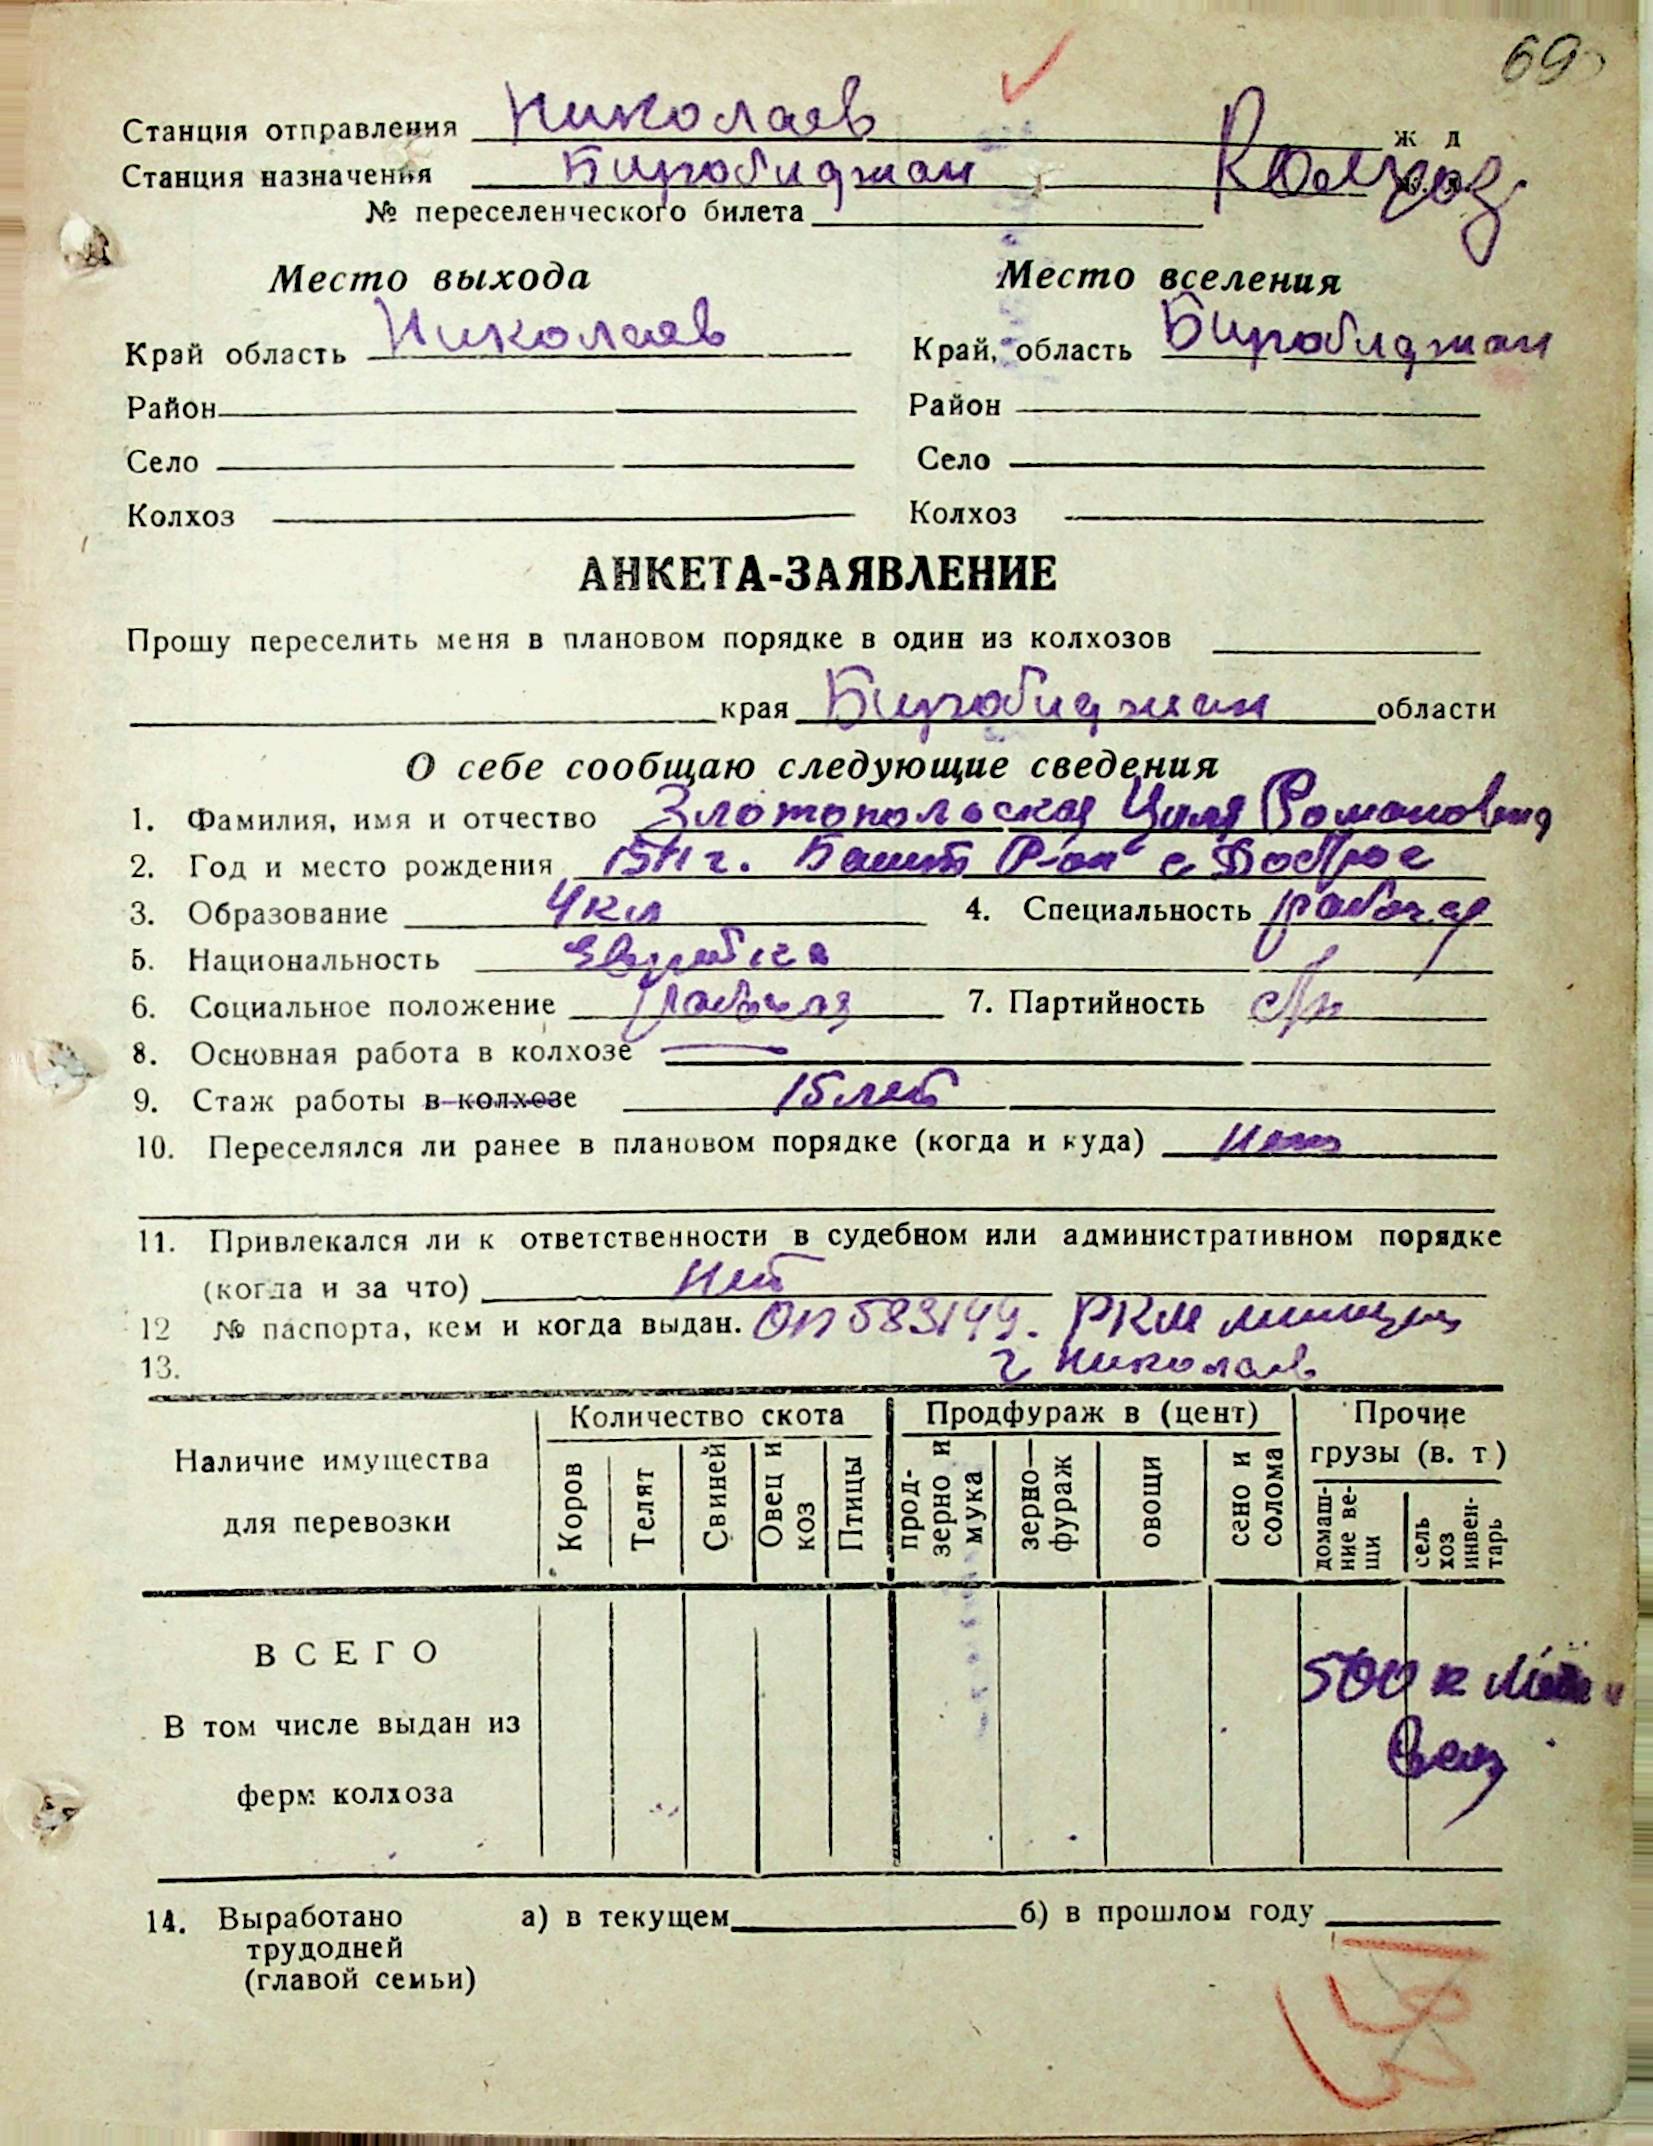 69
Станция отправления Николаев ж д
Станция назначения Биробиджан Колхоз
№ переселенческого билета
Место выхода Место вселения
Край область Николаев Край, область Биробиджан
Район Район
Село Село
Колхоз Колхоз
АНКЕТА-ЗАЯВЛЕНИЕ
Прошу переселить меня в плановом порядке в один из колхозов
края Биробиджан области
О себе сообщаю следующие сведения
1. Фамилия, имя и отчество Злотопольская Циля Романовна
2. Год и место рождения 1911 г. Башт Р-он с Доброе
3. Образование 4 кл 4. Специальность рабочая
5. Национальность Еврейка
6. Социальное положение рабочая 7. Партийность
8. Основная работа в колхозе —
9. Стаж работы в колхозе 15 лет
10. Переселялся ли ранее в плановом порядке (когда и куда) Нет
11. Привлекался ли к ответственности в судебном или административном порядке
(когда и за что) Нет
12 № паспорта, кем и когда выдан. 583149. РКМ милиции
13. г Николаев
Количество скота Продфураж в (цент) Прочие
грузы (в. т.)
Наличие имущества
для перевозки
Коров
Телят
Свиней
Овец и
коз
Птицы
прод-
зерно и
мука
зерно—
фураж
овощи
сено и
солома
домаш-
ние ве-
щи
сель
хоз
инвен-
тарь
ВСЕГО
500 к
В том числе выдан из
вещ
ферм колхоза
14. Выработано а) в текущем б) в прошлом году
трудодней
(главой семьи)